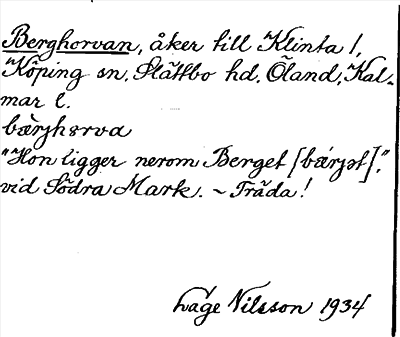 Berghorvan, åker till Klinta 1,
Köping sn. Slättbo hd. Öland, Kal-
mar l.
bæ̀rjhɷrva
"Hon ligger nerom Berget [bǽrjət]."
vid Södra Mark. ~ Träda!
Lage Nilsson 1934